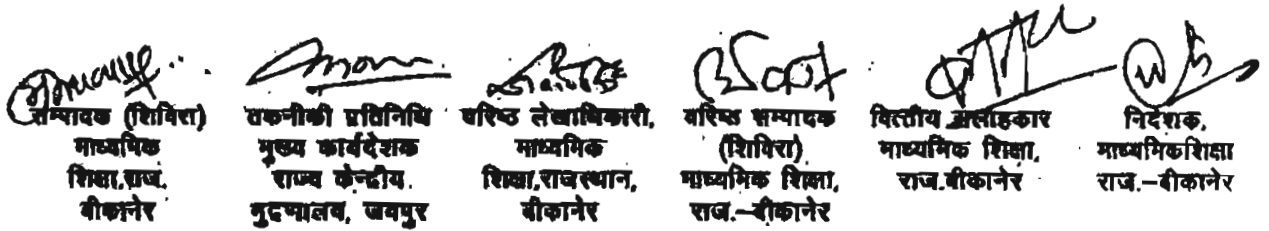 सम्पादक (शिविरा)
माध्यमिक
शिक्षा,राज.
बीकानेर
तकनीकी प्रतिनिधि
मुख्य कार्यदेशक
राज्य केन्द्रीय
मुद्रणालय, जयपुर
वरिष्ठ लेखाधिकारी,
माध्यमिक
शिक्षा,राजस्थान,
बीकानेर
वरिष्ठ सम्पादक
(शिविरा)
माध्यमिक शिक्षा,
राज.–बीकानेर
वित्तीय सलाहकार
माध्यमिक शिक्षा,
राज.बीकानेर
निदेशक,
माध्यमिकशिक्षा
राज.–बीकानेर